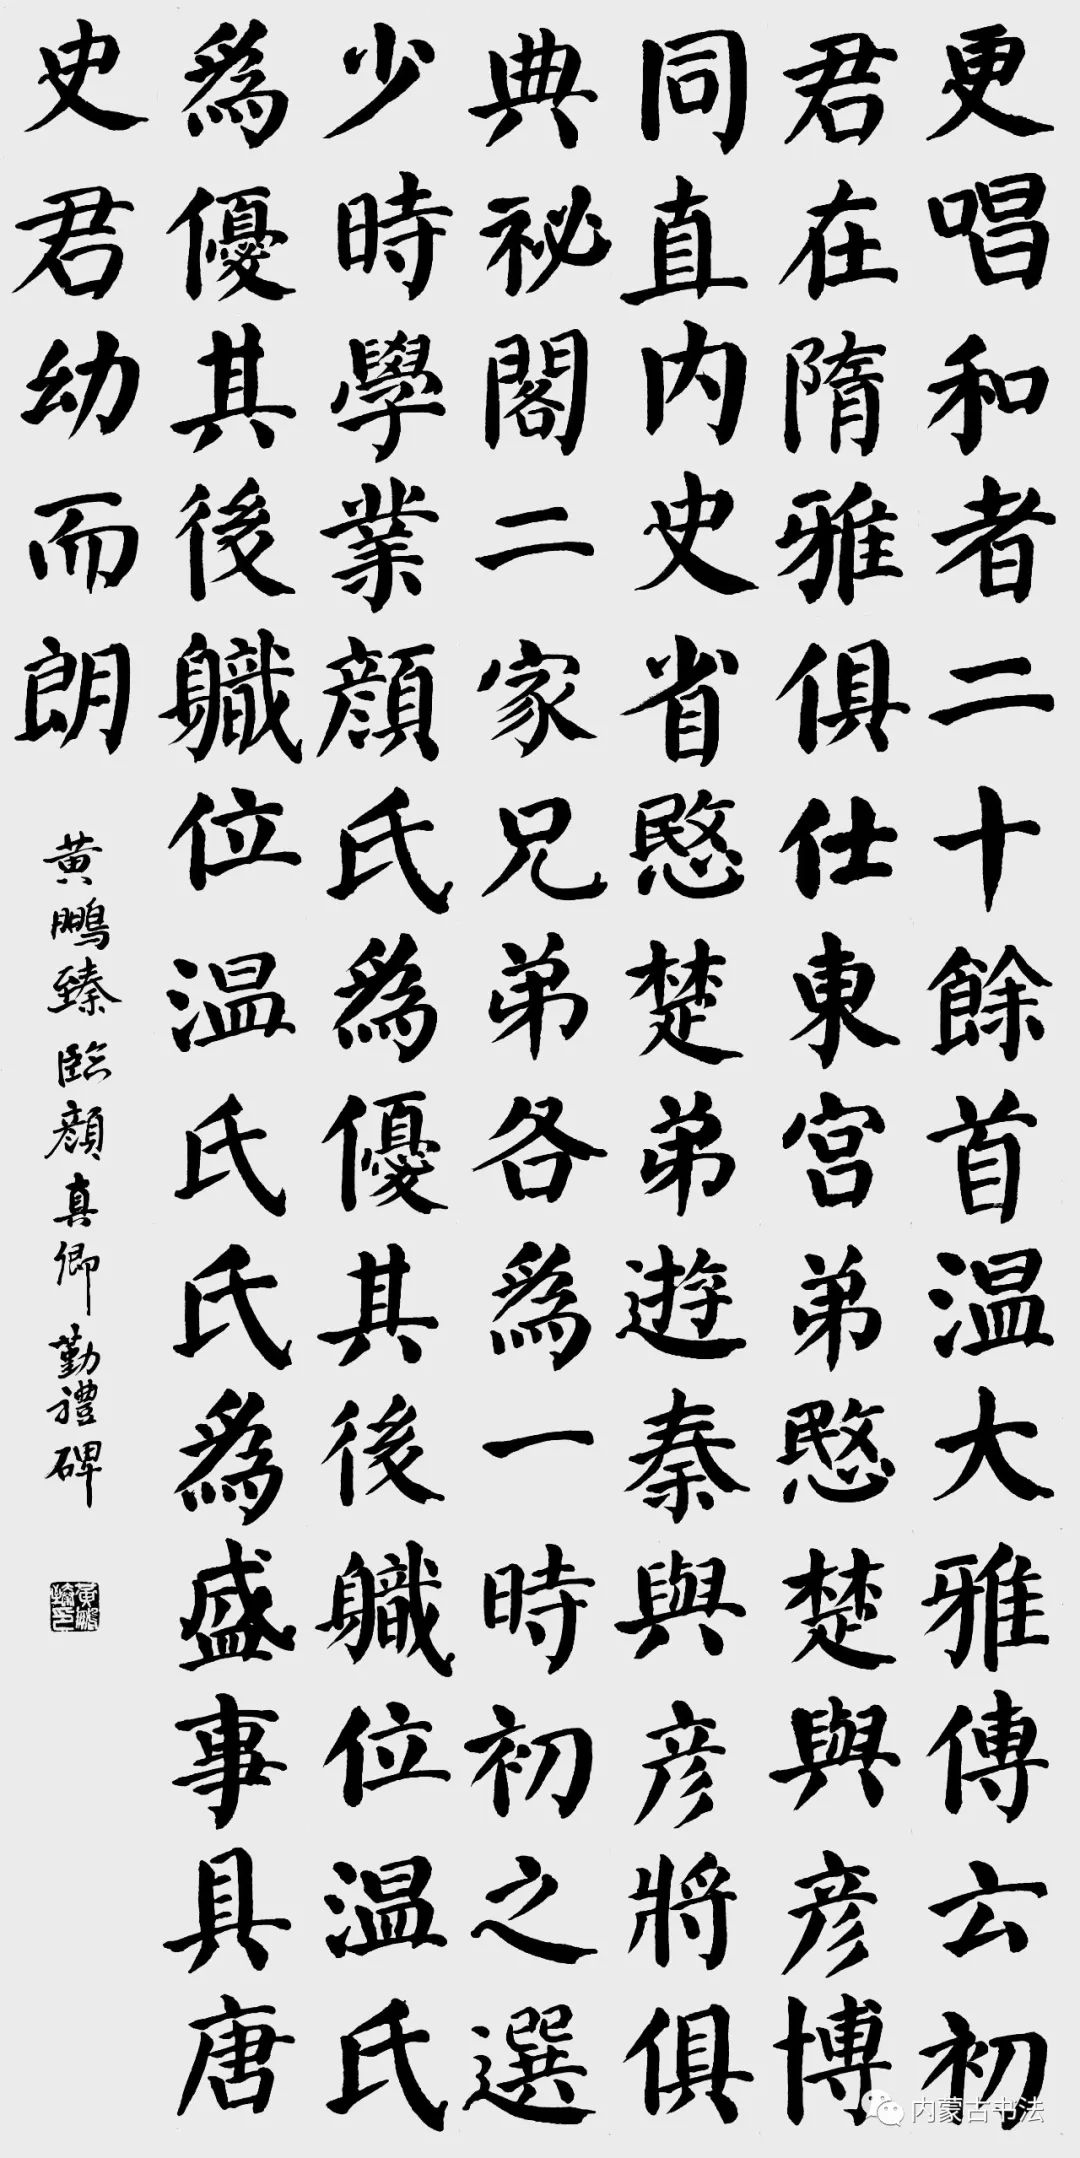 更唱和者二十餘首温大雅傳云初
君在隋雅俱仕東宫弟愍楚與彦博
同直内史省愍楚弟遊秦與彦將俱
典祕閣二家兄弟各為一時初之選
少時學業顔氏為優其後軄位温氏
為優其後軄位温氏氏為盛事具唐
史君幼而朗
黄鵬臻臨顔真卿勤禮碑
内蒙古书法